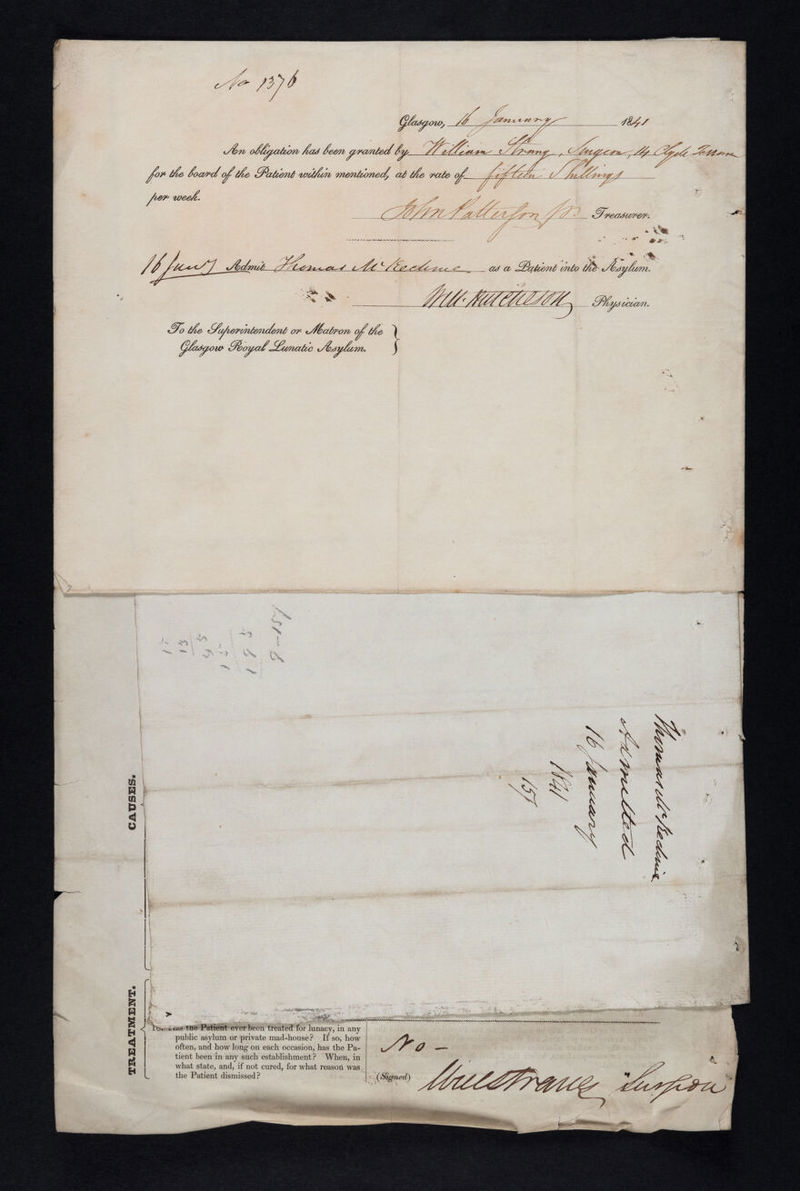 No 1376
Glasgow, 16 January 1841
An obligation has been granted by William Strang, Surgeon, 14 Clyde Terrace
for the board of the Patient within mentioned, at the rate of fifteen Shillings
per week.
John Patterson Treasurer.
16 Jany Admit Thomas McKechnie as a Patient into the Asylum.
Wm Hutcheson Physician.
To the Superintendent or Matron of the
Glasgow Royal Lunatic Asylum.
Thomas McKechnie
Admitted
16 January
1841
157
CAUSES.
TREATMENT.
the Patient ever been treated for lunacy, in any
public asylum or private mad-house? If so, how
often, and how long on each occasion, has the Pa-
tient been in any such establishment? When, in
what state, and, if not cured, for what reason was
the Patient dismissed?
No –
(Signed) Will Strang Surgeon